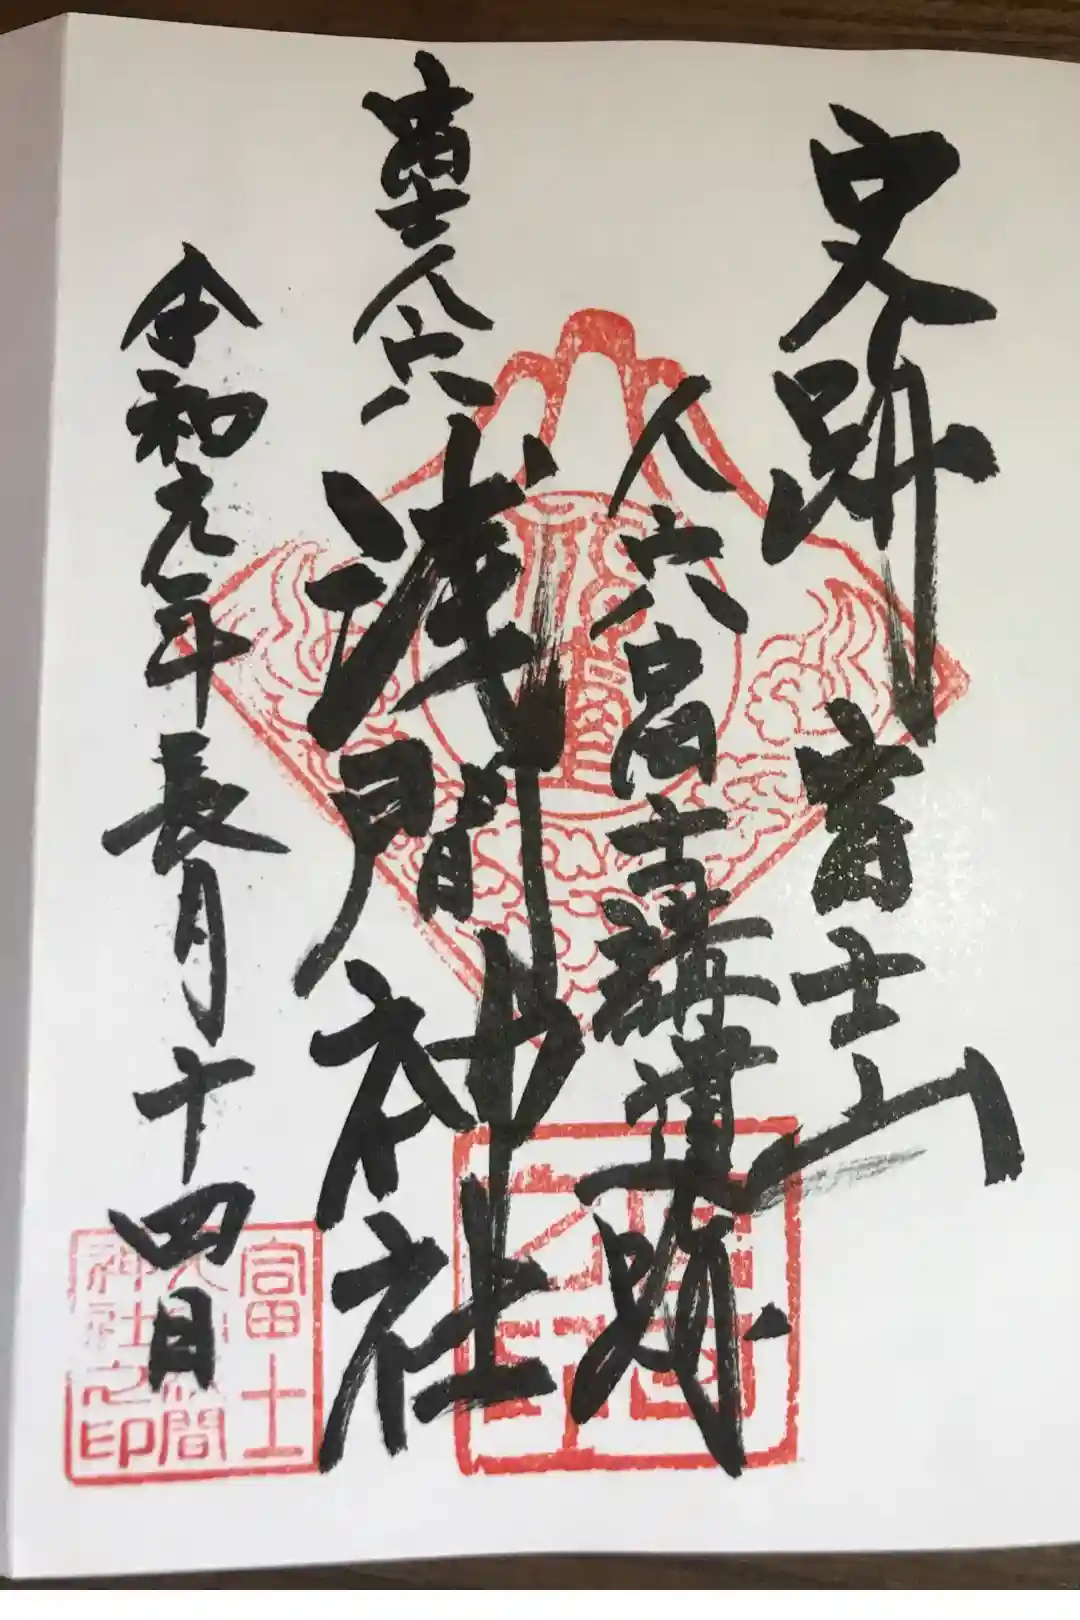 史跡 富士山
人穴富士講遺跡
富士人穴
浅間神社
令和元年長月十四日
富士
神社之印